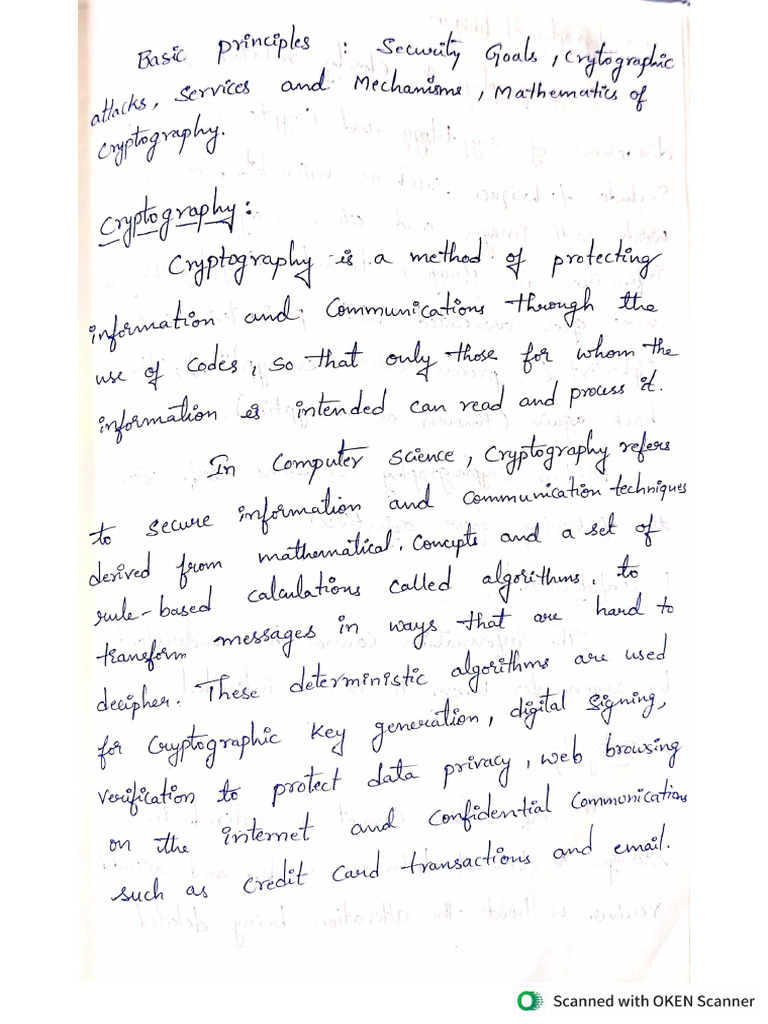 Basic principles : Security Goals, Crytographic
attacks, Services and Mechanisms, Mathematics of
Cryptography.
Cryptography:
Cryptography is a method of protecting
information and communications through the
use of codes, so that only those for whom the
information is intended can read and process it.
In Computer Science, Cryptography refers
to secure information and communication techniques
derived from mathematical concepts and a set of
rule-based calculations called algorithms, to
transform messages in ways that are hard to
decipher. These deterministic algorithms are used
for Cryptographic key generation, digital signing,
verification to protect data privacy, web browsing
on the internet and confidential communications
such as credit card transactions and email.
Scanned with OKEN Scanner